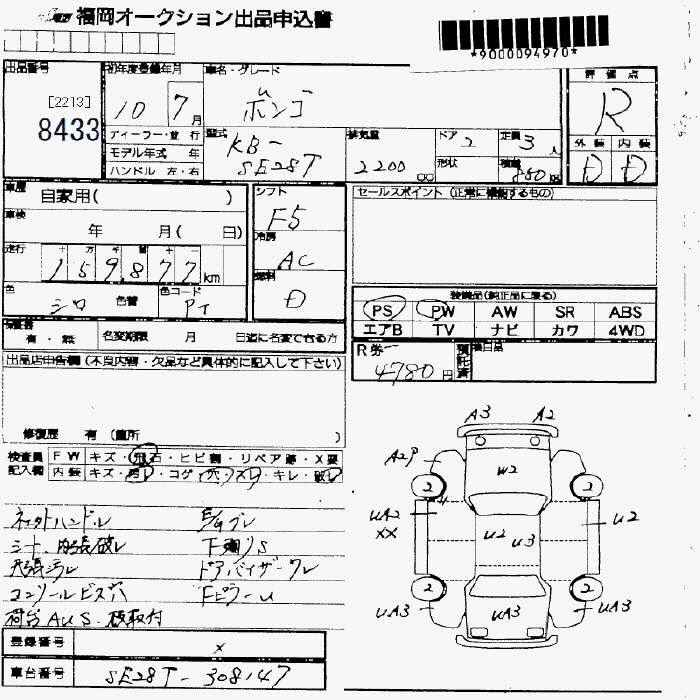 福岡オークション出品申込書
*9000094970*
出品番号
[2213]
8433
初年度登録年月
10年 7月
車名・グレード
ボンゴ
評価点
R
ディーラー・並行
モデル年式 年
ハンドル 左・右
型式
KB-
SE28T
排気量
2200 cc
ドア 2
形状
定員 3人
積載 850 kg
外装 内装
D D
車歴 自家用( )
車検 年 月( 日)
走行 十 万 千 百 十 一
159877 km
色 シロ 色替
色コード PT
シフト
F5
冷房
AC
燃料
D
セールスポイント(正常に機能するもの)
装備品(純正品に限る)
PS PW AW SR ABS
エアB TV ナビ カワ 4WD
保証書
有・無
名変期限 月 日迄に名変できる方
R券
4780円
預託済
備目品
出品店申告欄(不良内容・欠品など具体的に記入して下さい)
修復歴 有(箇所 )
検査員 FW キズ・飛石・ヒビ割・リペア跡・X要
記入欄 内装 キズ・汚レ・コゲ・穴・スレ・キレ・破レ
ハンドル E/Gブレ
シート、内張破レ 下廻りS
天張汚レ ドアバイザーワレ
コンソールビス穴 Fピラーu
荷台AUS、板取付
A3 A2
A2P
W2
2 2
UA2
XX
U2 U3
U2
2 2
UA3 UA3 UA3
登録番号 x
車台番号 SE28T-308147